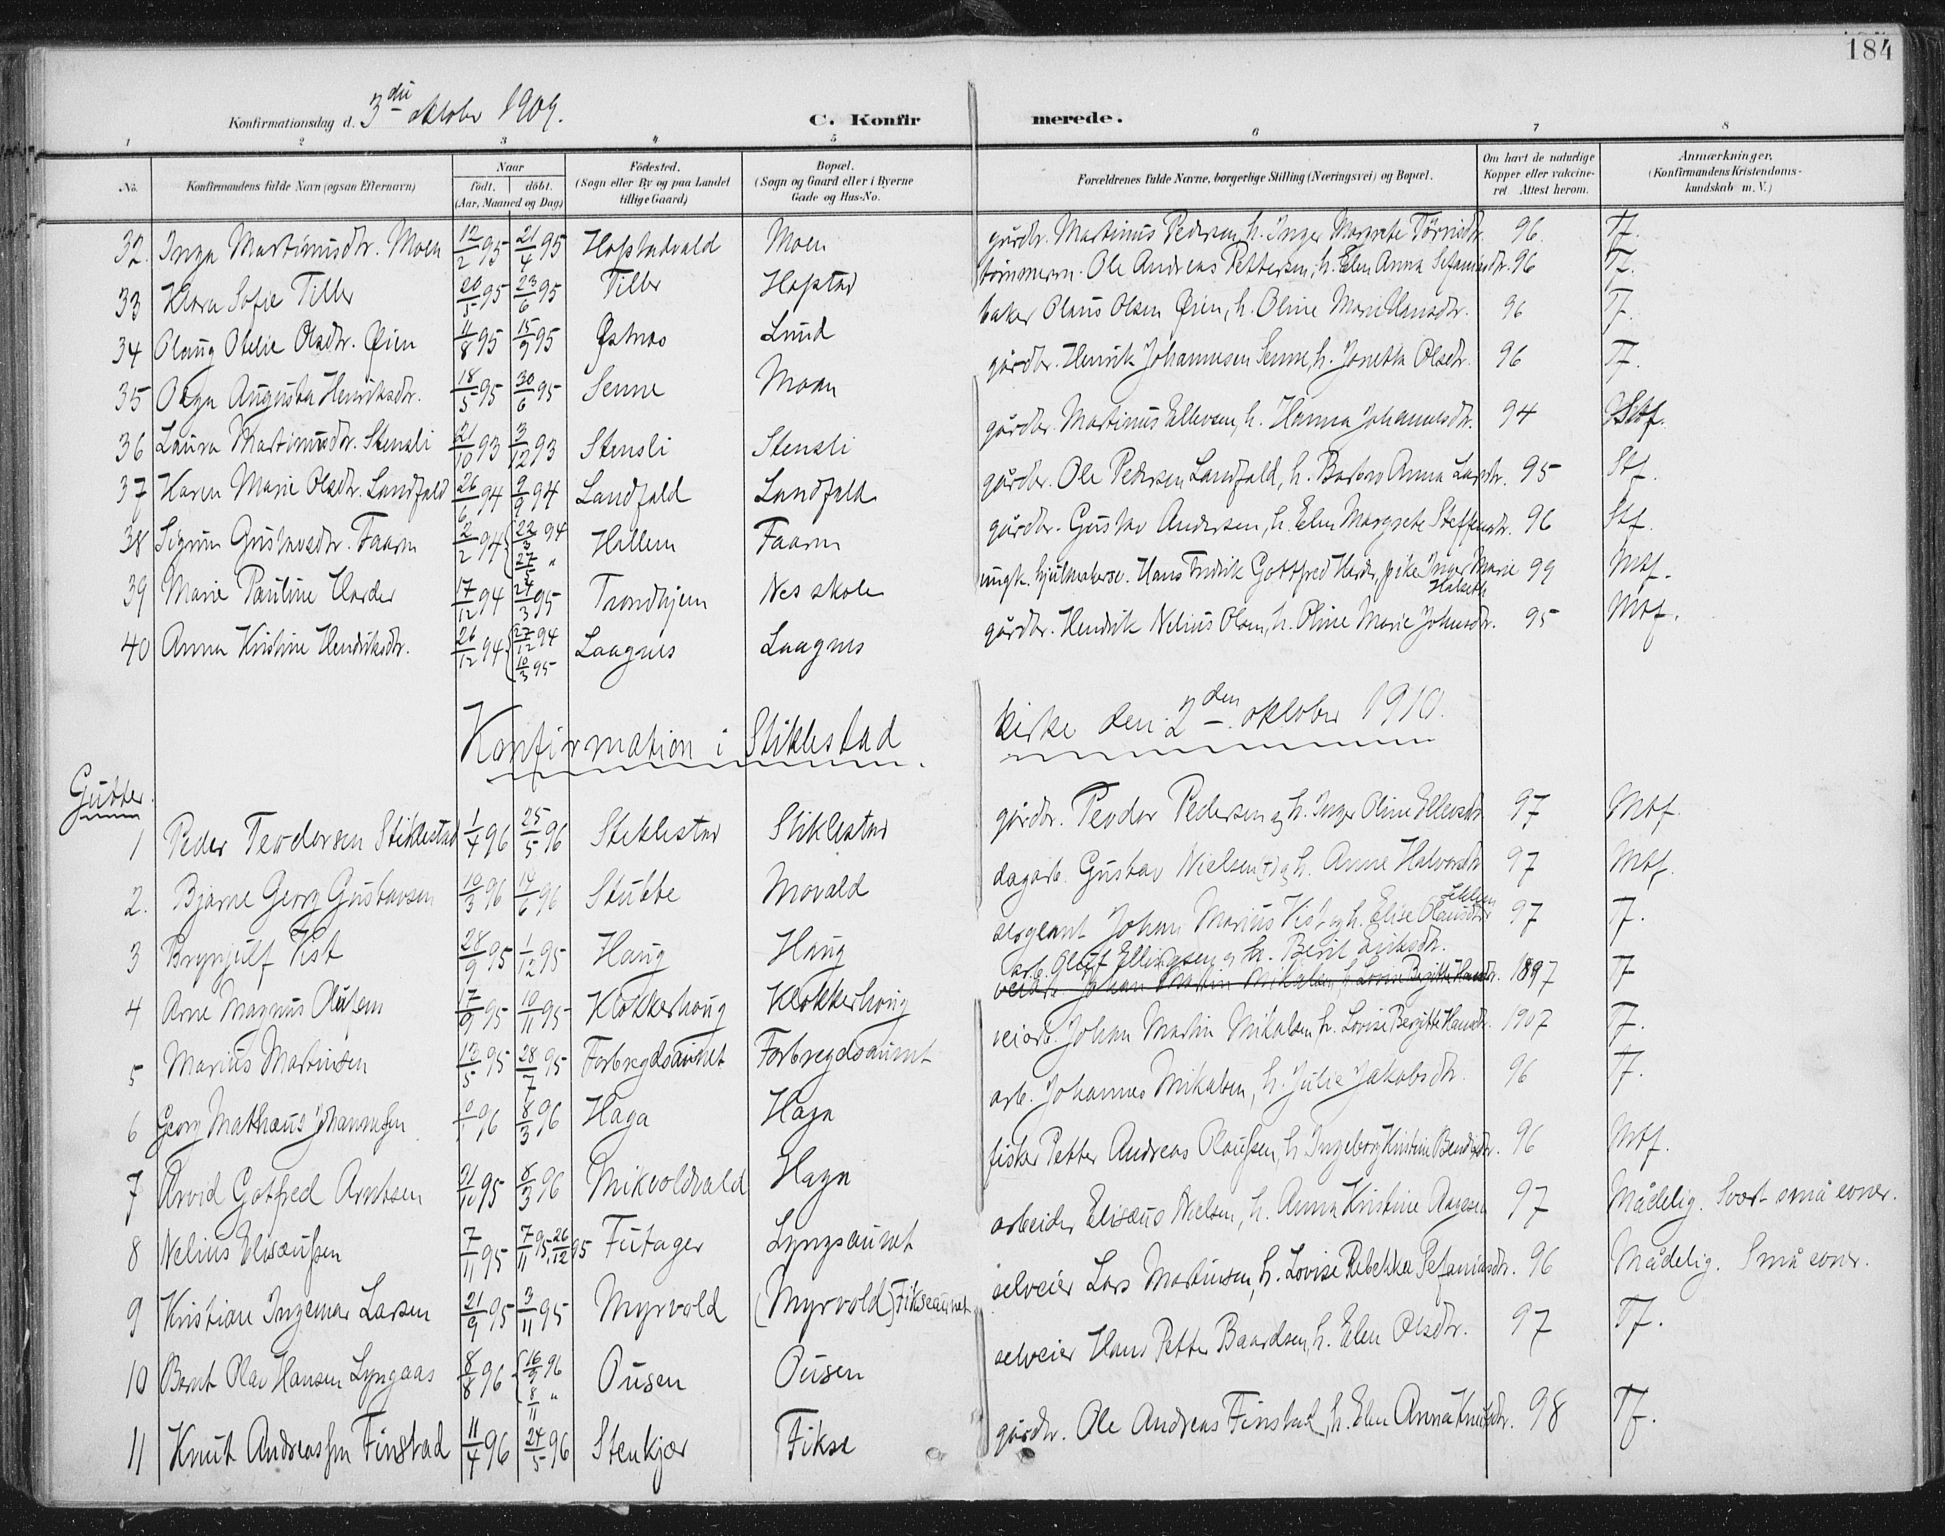 184
Konfirmationsdag d. 3die oktober 1909.
C. Konfirmerede.
1 2 3 4 5 6 7 8
No. Konfirmandens fulde Navn (ogsaa Efternavn) Naar født. døbt. (Aar, Maaned og Dag) Fødested. (Sogn eller By og paa Landet tillige Gaard) Bopæl. (Sogn og Gaard eller i Byerne Gade og Hus-No. Forældrenes fulde Navne, borgerlige Stilling (Næringsvei) og Bopæl. Om havt de naturlige Kopper eller vakcineret. Attest herom. Anmærkninger. (Konfirmandens Kristendomskundskab m. V.)
32. Inga Martinusdtr. Moen 12/2 95 21/4 95 Hofstadvald Moen gårdbr. Martinus Pedersen, h. Inger Margrete Tørrisdtr. 96. Tf.
33 Klara Sofie Tiller 20/5 95 23/6 95 Tiller Hofstad tømmerm. Ole Andreas Pettersen, h. Elen Anna Sefaniasdtr. 96 Tf.
34 Olaug Otelie Olsdtr. Øien 11/8 95 15/9 95 Østnes Lund baker Olaus Olsen Øien, h. Oline Marie Hansdtr. 96 Tf.
35 Olga Augusta Henriksdtr. 18/5 95 30/6 95 Senne Moan gårdbr. Henrik Johannesen Senne, h. Jonetta Olsdtr. 96 Tf.
36 Laura Martinusdtr. Stensli 21/10 93 3/12 93 Stensli Stensli gårdbr. Martinus Ellevsen, h. Hanna Johannesdtr. 94 Stf.
37 Karen Marie Olsdtr. Landfald 26/6 94 9/9 94 Landfald Landfald gårdbr. Ole Pedersen Landfald, h. Barbro Anna Larsdtr. 95 Stf.
38 Sigrun Gustavsdtr. Faaren 2/2 94 {22/3 94 27/5 " Hallem Faaren gårdbr. Gustav Andersen, h. Elen Margrete Steffensdtr. 96 Stf.
39 Marie Pauline Harder 17/12 94 24/3 95 Trondhjem Nes skole ungk. hjulmakersv. Hans Fredrik Gottfred Harder, pike Inger Marie Halseth 99 Mtf.
40 Anna Kristine Hendriksdtr. 26/12 94 {27/12 94 10/3 95 Laagnes Laagnes gårdbr. Hendrik Nelius Olsen, h. Oline Marie Johnsdtr. 95 Mtf.
Konfirmation i Stiklestad kirke den 2den oktober 1910.
Gutter.
1 Peder Teodorsen Stiklestad 1/4 96 25/5 96 Stiklestad Stiklestad gårdbr. Peodor Pedersen og h. Inger Oline Ellevsdtr. 97 Mtf.
2. Bjarne Georg Gustavsen 10/3 96 14/6 96 Stubbe Movald dagarb. Gustav Nielsen (+) og h. Anne Halvorsdtr. 97 Mtf.
3 Brynjulf Vist 28/9 95 1/12 95 Haug Haug sergeant Johan Marius Vist og h. Elise Olausdtr. 97 Tf.
4 Arne Magnus Olufsen 17/9 95 10/11 95 Klokkerhoug Klokkerhoug arb. Oluf Ellingsen og h. Berit Eriksdtr. 1897 Tf
veiarb. Johan Martin Mikalsen, h. Lovise Bergitte Hansdtr.
5 Marius Martinsen 12/5 95 28/7 95 Forbregdsaunet Forbregdsaunet veiarb. Johan Martin Mikalsen, h. Lovise Bergitte Hansdtr. 1907 Tf.
6 Georg Mathæus Johannesen 96 8/3 96 Haga Haga arb. Johannes Mikalsen, h. Julie Jakobsdtr. 96 Tf.
7 Arvid Gotfred Arntsen 31/10 95 8/3 96 Mikvoldvald Haga fisker Petter Andreas Olaussen, h. Ingeborg Kristine Bendiksdtr. 96 Mtf.
8 Nelius Elisæussen 7/11 95 7/11 95, 26/12 95 Futager Lyngsaunet arbeider Elisæus Nielsen, h. Anna Kristine Aagesen 97 Mådelig. Svært små evner.
9 Kristian Ingemar Larsen 21/9 95 3/11 95 Myrvold (Myrvold) Fikseaunet selveier Lars Martinsen, h. Lovise Rebekka Sefaniasdtr. 96 Mådelig. Små evner.
10 Bernt Olav Hansen Lyngaas 8/8 96 {16/9 96 8/11 " Ousen Ousen selveier Hans Petter Baardsen, h. Elen Olsdtr. 97 Tf.
11 Knut Andreassen Finstad 11/4 96 24/5 96 Stenkjær Fikse gårdbr. Ole Andreas Finstad, h. Elen Anna Knutsdtr. 98 Tf.